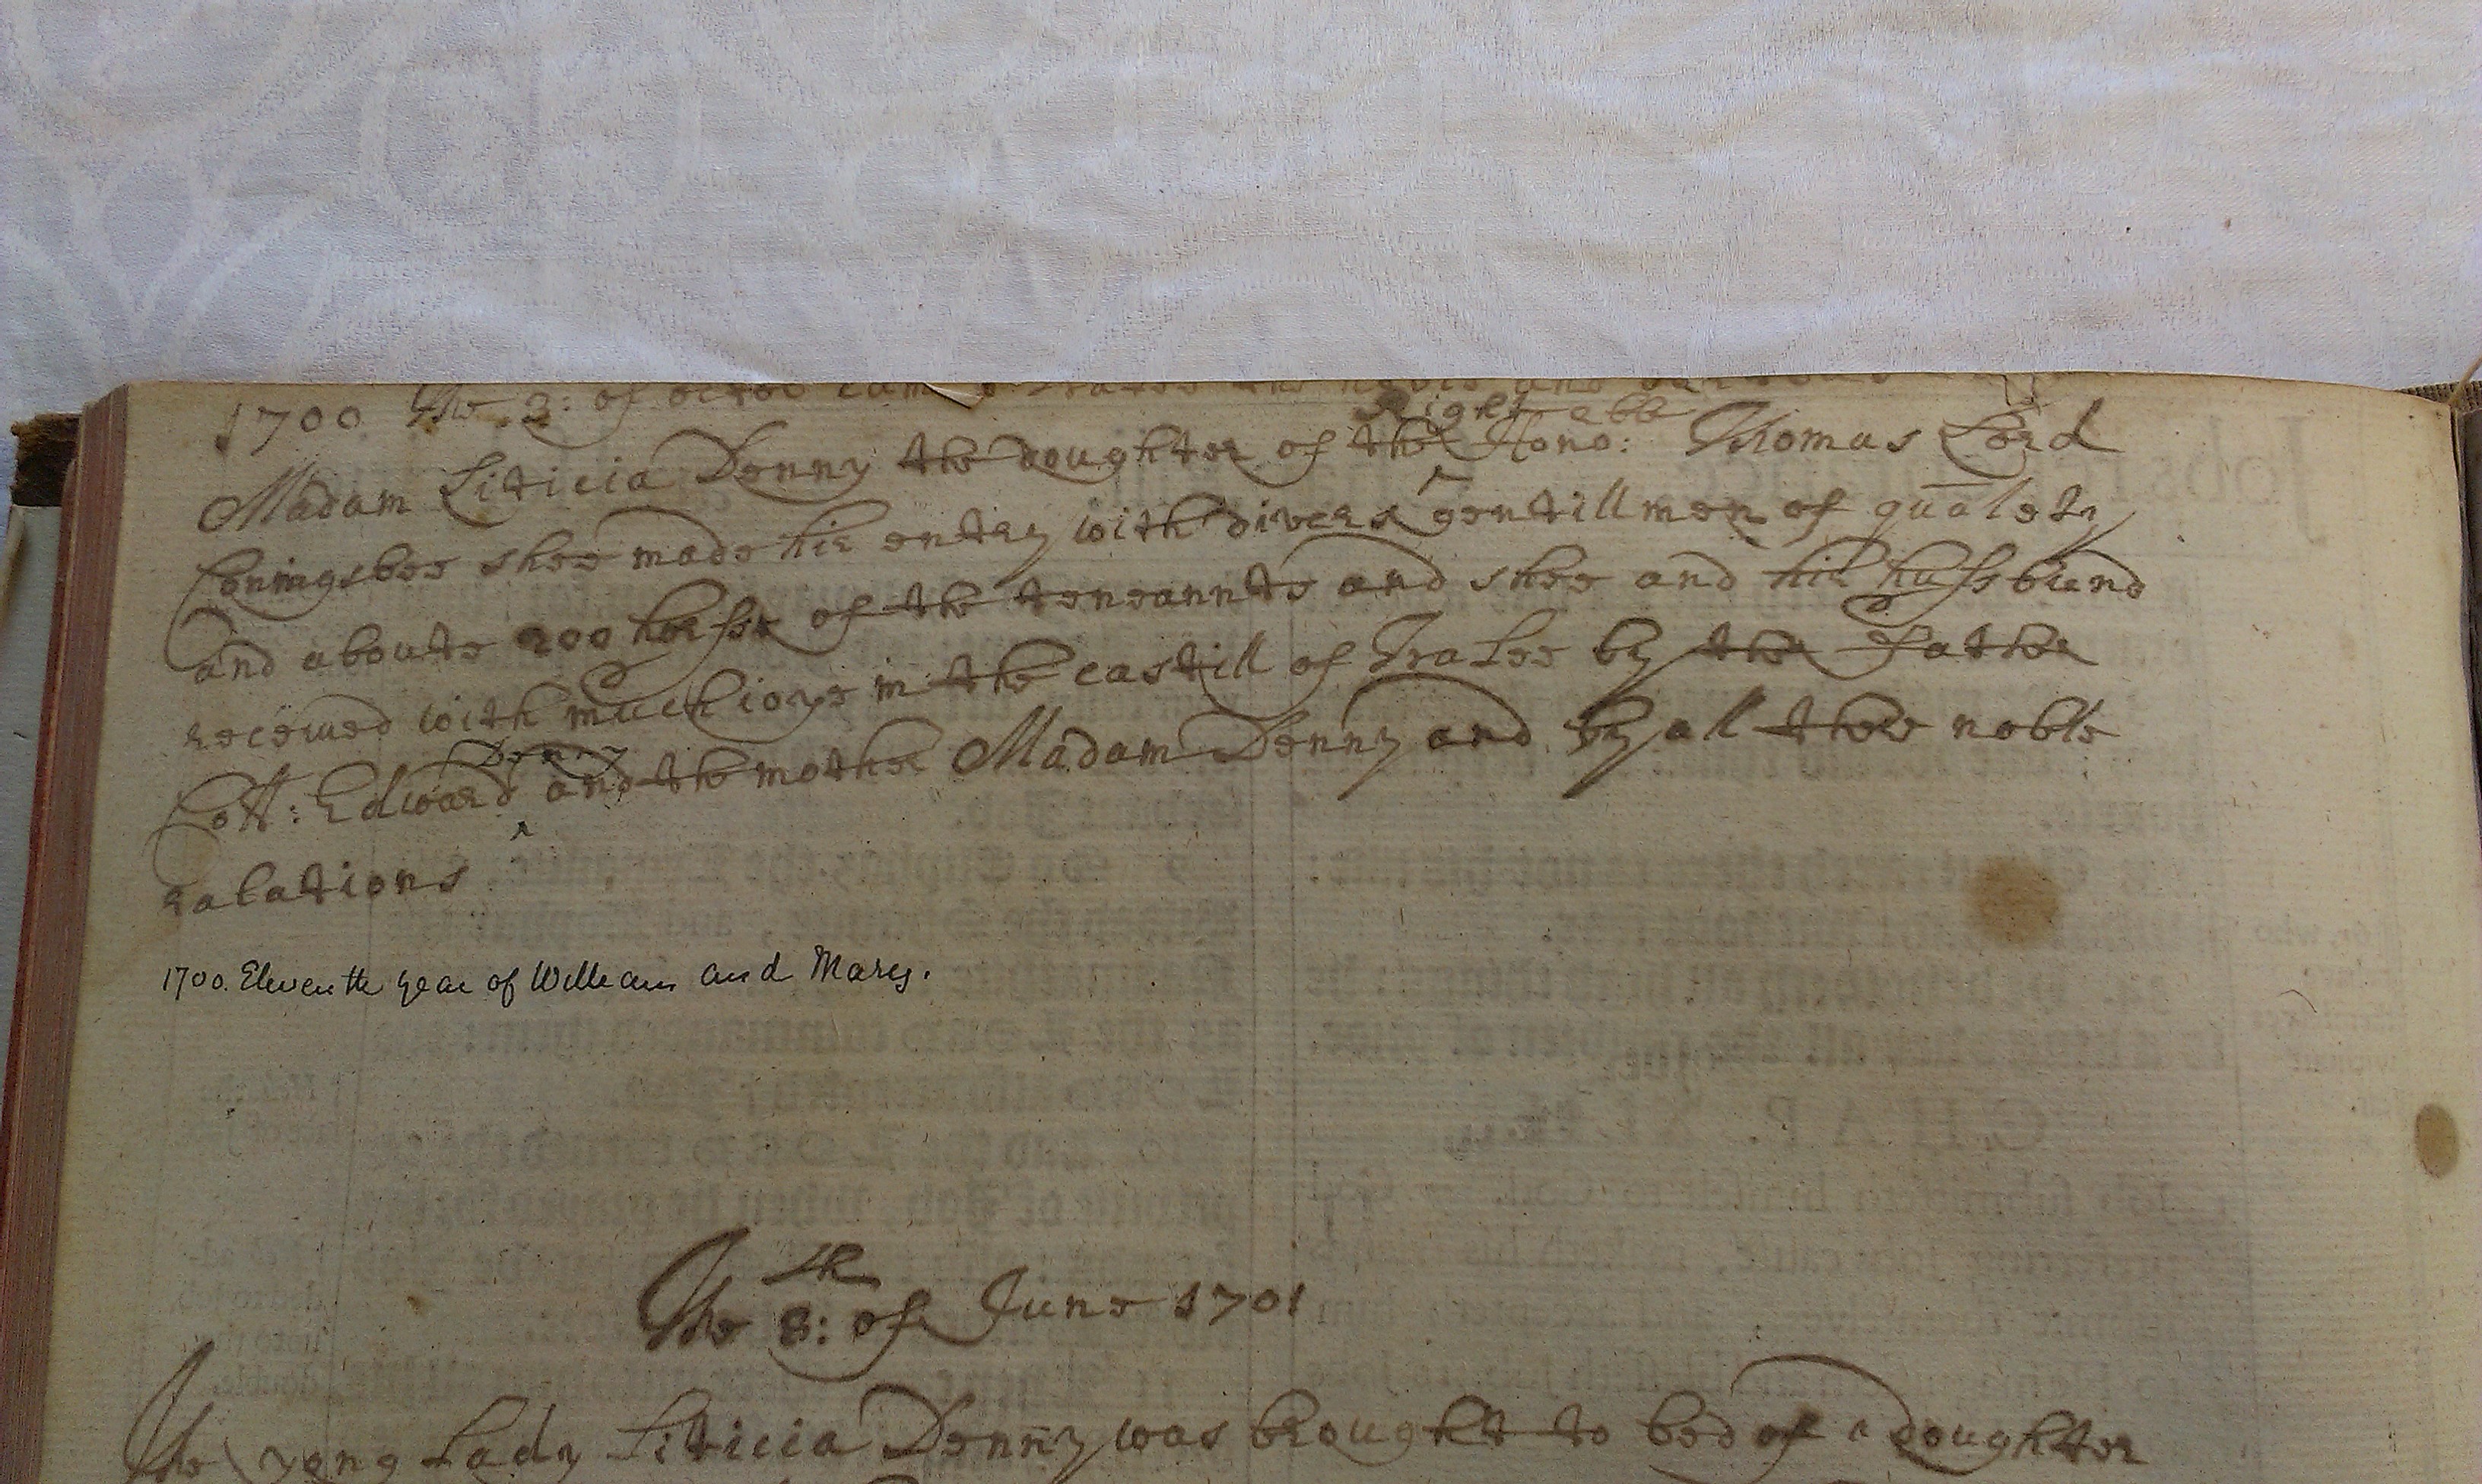 1700 The 2: of octob cam to Tralee the noble and
Right able
Madam Liticia Denny the doughter of the Hono: Thomas Lord
Coningsbee shee made hir entry with divers gentillmen of qualety
and aboute 200 horsse of the teneannts and shee and hir hussband
received with much ioye in the castill of TraLee by the Father
Denny
Coll: Edward and the mother Madam Denny and by all thee noble
ralations
1700. Eleventh year of William and Mary.
th
The 8: of June 1701
The yong Lady Liticia Denny was brought to bed of a Doughter